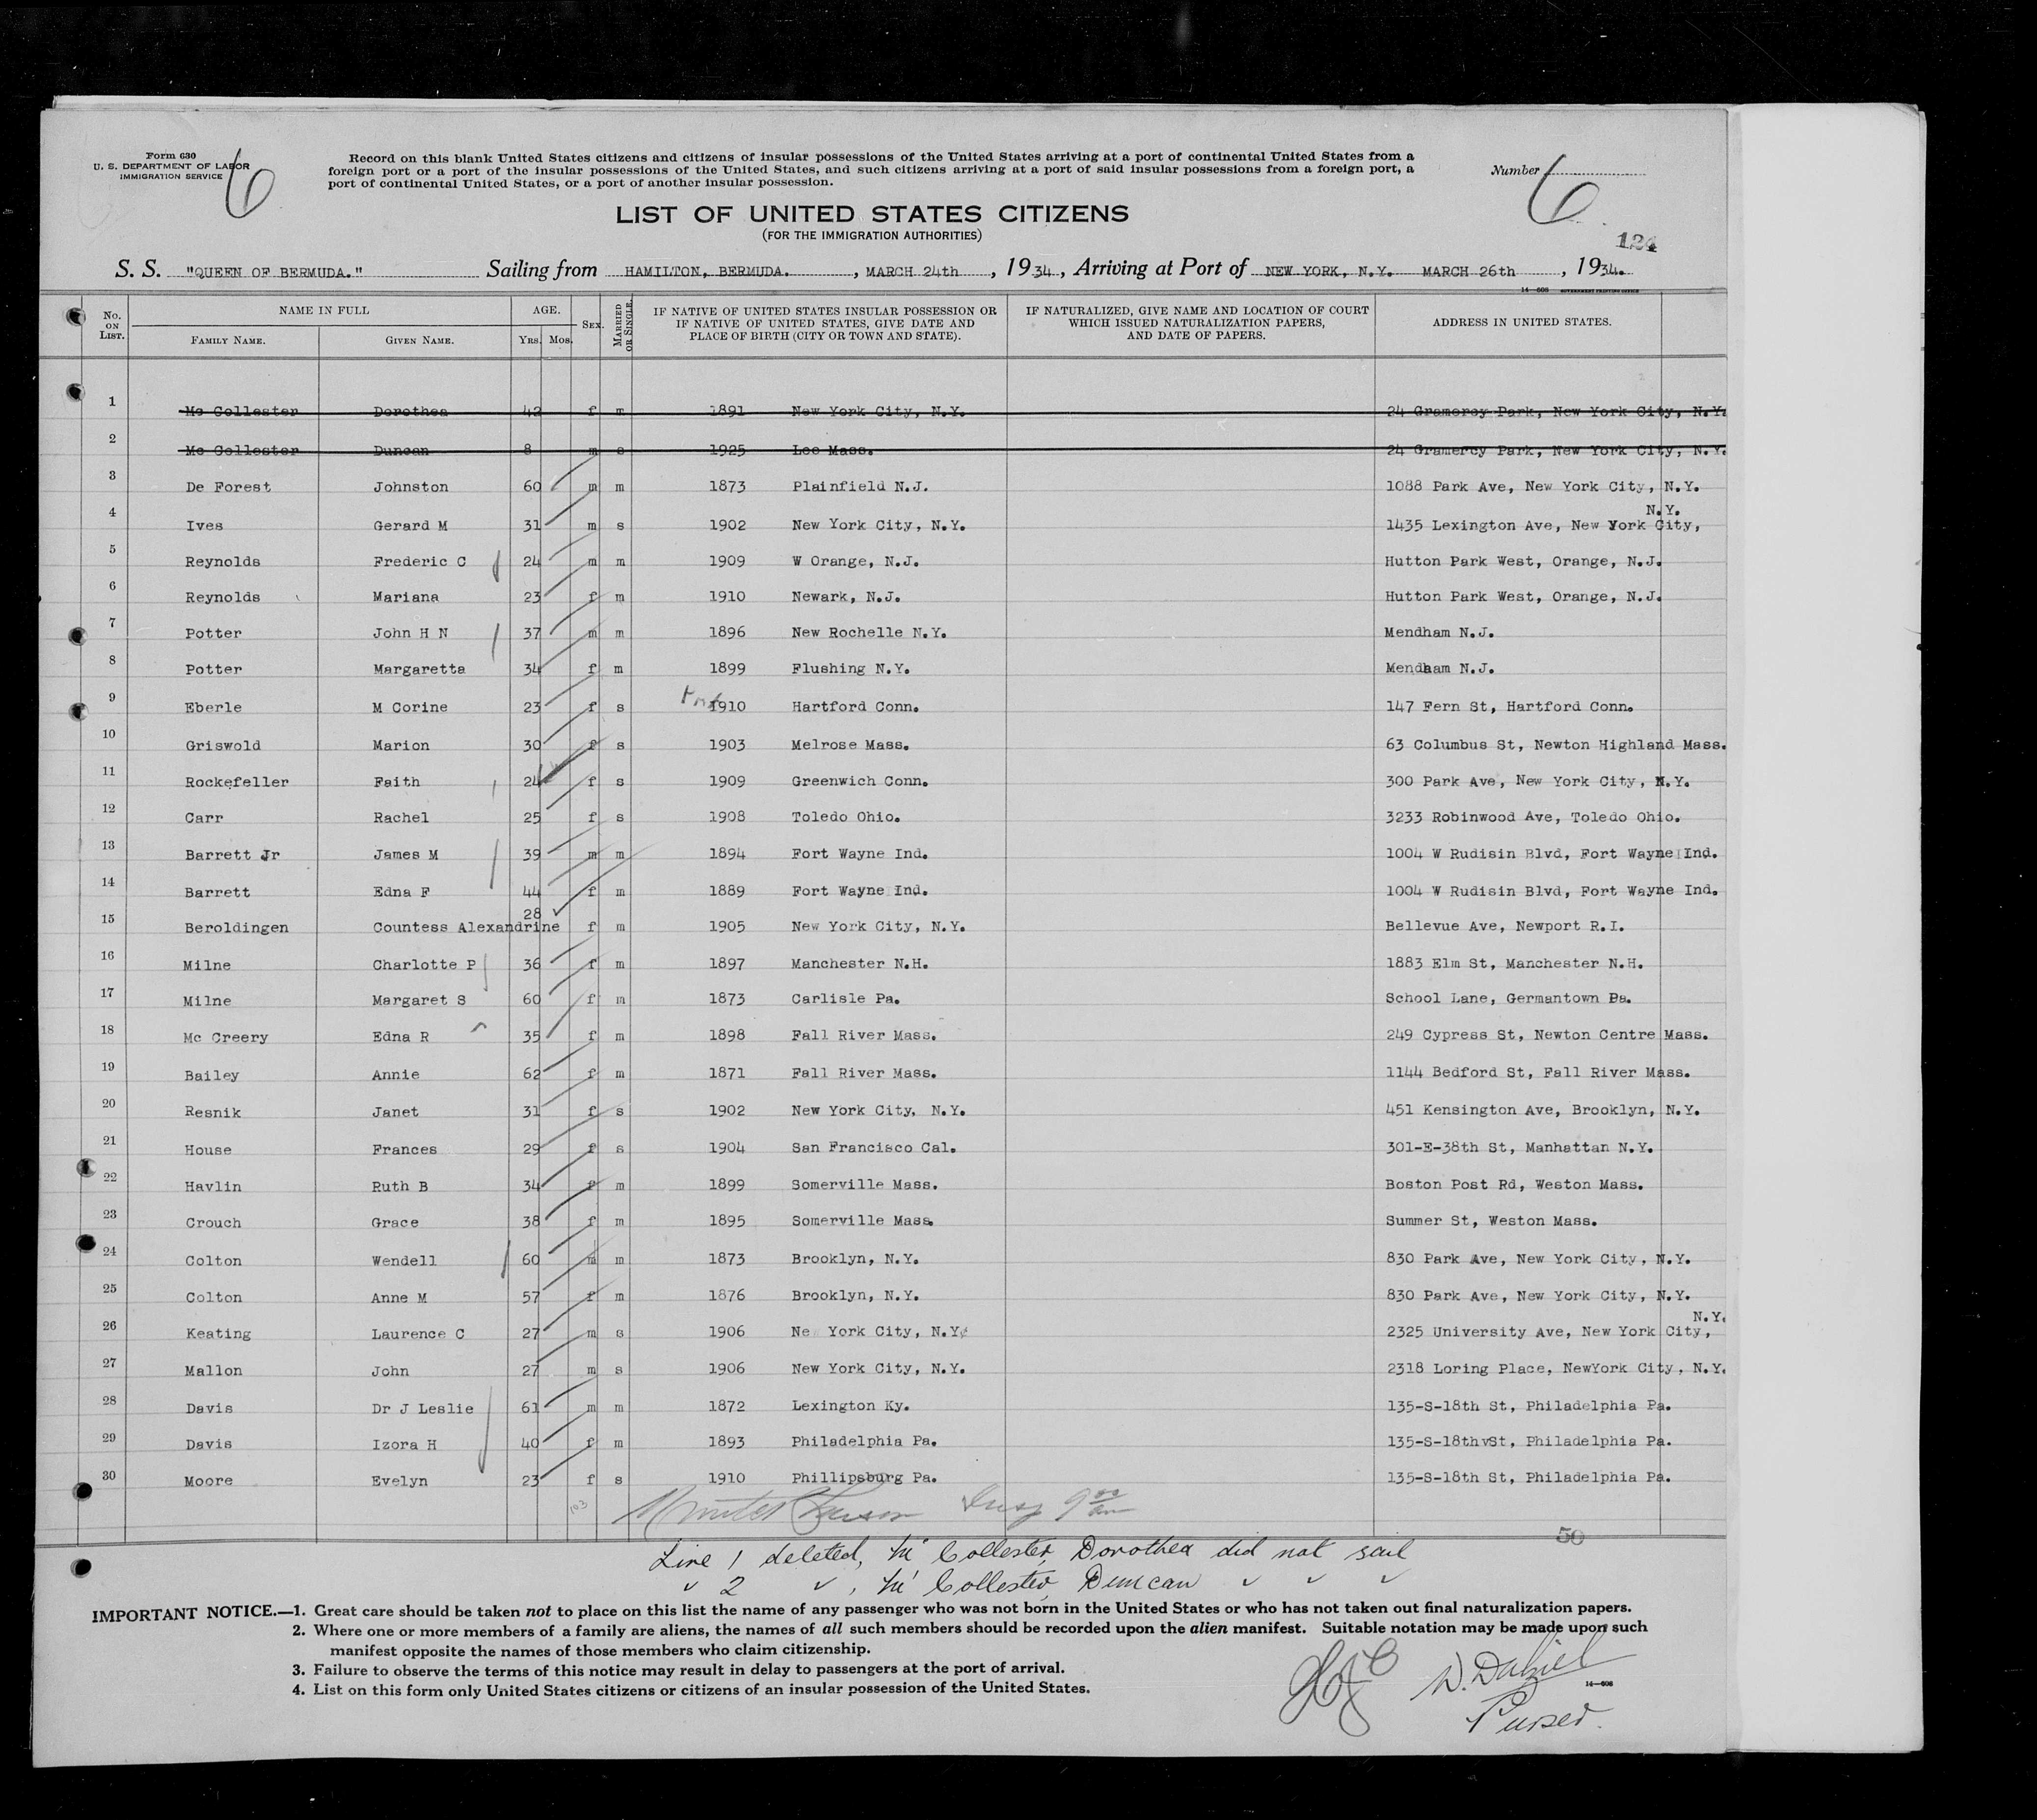 Form 630
U. S. DEPARTMENT OF LABOR
IMMIGRATION SERVICE
6
Record on this blank United States citizens and citizens of insular possessions of the United States arriving at a port of continental United States from a
foreign port or a port of the insular possessions of the United States, and such citizens arriving at a port of said insular possessions from a foreign port, a
port of continental United States, or a port of another insular possession.
Number 6
LIST OF UNITED STATES CITIZENS
(FOR THE IMMIGRATION AUTHORITIES)
124
S. S. "QUEEN OF BERMUDA." Sailing from HAMILTON, BERMUDA. , MARCH 24th , 1934 , Arriving at Port of NEW YORK, N.Y. MARCH 26th , 1934.
14—608 GOVERNMENT PRINTING OFFICE
No. ON LIST. NAME IN FULL FAMILY NAME. GIVEN NAME. AGE. YRS. MOS. SEX. MARRIED OR SINGLE. IF NATIVE OF UNITED STATES INSULAR POSSESSION OR IF NATIVE OF UNITED STATES, GIVE DATE AND PLACE OF BIRTH (CITY OR TOWN AND STATE). IF NATURALIZED, GIVE NAME AND LOCATION OF COURT WHICH ISSUED NATURALIZATION PAPERS, AND DATE OF PAPERS. ADDRESS IN UNITED STATES.
1 Mc Collester Dorothea 42 f m 1891 New York City, N.Y. 24 Gramercy Park, New York City, N.Y.
2 Mc Collester Duncan 8 m s 1925 Lee Mass. 24 Gramercy Park, New York City, N.Y.
3 De Forest Johnston 60 m m 1873 Plainfield N.J. 1088 Park Ave, New York City, N.Y.
4 Ives Gerard M 31 m s 1902 New York City, N.Y. 1435 Lexington Ave, New York City, N.Y.
5 Reynolds Frederic C 24 m m 1909 W Orange, N.J. Hutton Park West, Orange, N.J.
6 Reynolds Mariana 23 f m 1910 Newark, N.J. Hutton Park West, Orange, N.J.
7 Potter John H N 37 m m 1896 New Rochelle N.Y. Mendham N.J.
8 Potter Margaretta 34 f m 1899 Flushing N.Y. Mendham N.J.
9 Eberle M Corine 23 f s 1910 Hartford Conn. 147 Fern St, Hartford Conn.
10 Griswold Marion 30 f s 1903 Melrose Mass. 63 Columbus St, Newton Highland Mass.
11 Rockefeller Faith 24 f s 1909 Greenwich Conn. 300 Park Ave, New York City, N.Y.
12 Carr Rachel 25 f s 1908 Toledo Ohio. 3233 Robinwood Ave, Toledo Ohio.
13 Barrett Jr James M 39 m m 1894 Fort Wayne Ind. 1004 W Rudisin Blvd, Fort Wayne Ind.
14 Barrett Edna F 44 f m 1889 Fort Wayne Ind. 1004 W Rudisin Blvd, Fort Wayne Ind.
15 Beroldingen Countess Alexandrine 28 f m 1905 New York City, N.Y. Bellevue Ave, Newport R.I.
16 Milne Charlotte P 36 f m 1897 Manchester N.H. 1883 Elm St, Manchester N.H.
17 Milne Margaret S 60 f m 1873 Carlisle Pa. School Lane, Germantown Pa.
18 Mc Creery Edna R 35 f m 1898 Fall River Mass. 249 Cypress St, Newton Centre Mass.
19 Bailey Annie 62 f m 1871 Fall River Mass. 1144 Bedford St, Fall River Mass.
20 Resnik Janet 31 f s 1902 New York City, N.Y. 451 Kensington Ave, Brooklyn, N.Y.
21 House Frances 29 f s 1904 San Francisco Cal. 301-E-38th St, Manhattan N.Y.
22 Havlin Ruth B 34 f m 1899 Somerville Mass. Boston Post Rd, Weston Mass.
23 Crouch Grace 38 f m 1895 Somerville Mass. Summer St, Weston Mass.
24 Colton Wendell 60 m m 1873 Brooklyn, N.Y. 830 Park Ave, New York City, N.Y.
25 Colton Anne M 57 f m 1876 Brooklyn, N.Y. 830 Park Ave, New York City, N.Y.
26 Keating Laurence C 27 m s 1906 Ne York City, N.Y. 2325 University Ave, New York City, N.Y.
27 Mallon John 27 m s 1906 New York City, N.Y. 2318 Loring Place, NewYork City, N.Y.
28 Davis Dr J Leslie 61 m m 1872 Lexington Ky. 135-S-18th St, Philadelphia Pa.
29 Davis Izora H 40 f m 1893 Philadelphia Pa. 135-S-18thvSt, Philadelphia Pa.
30 Moore Evelyn 23 f s 1910 Phillipsburg Pa. 135-S-18th St, Philadelphia Pa.
103
Insp 9 00 am
50
Line 1 deleted, Mc Collester, Dorothea did not sail
" 2 " , Mc Collester Duncan " " "
IMPORTANT NOTICE.—1. Great care should be taken not to place on this list the name of any passenger who was not born in the United States or who has not taken out final naturalization papers.
2. Where one or more members of a family are aliens, the names of all such members should be recorded upon the alien manifest. Suitable notation may be made upon such
manifest opposite the names of those members who claim citizenship.
3. Failure to observe the terms of this notice may result in delay to passengers at the port of arrival.
4. List on this form only United States citizens or citizens of an insular possession of the United States.
14—608
Purser.